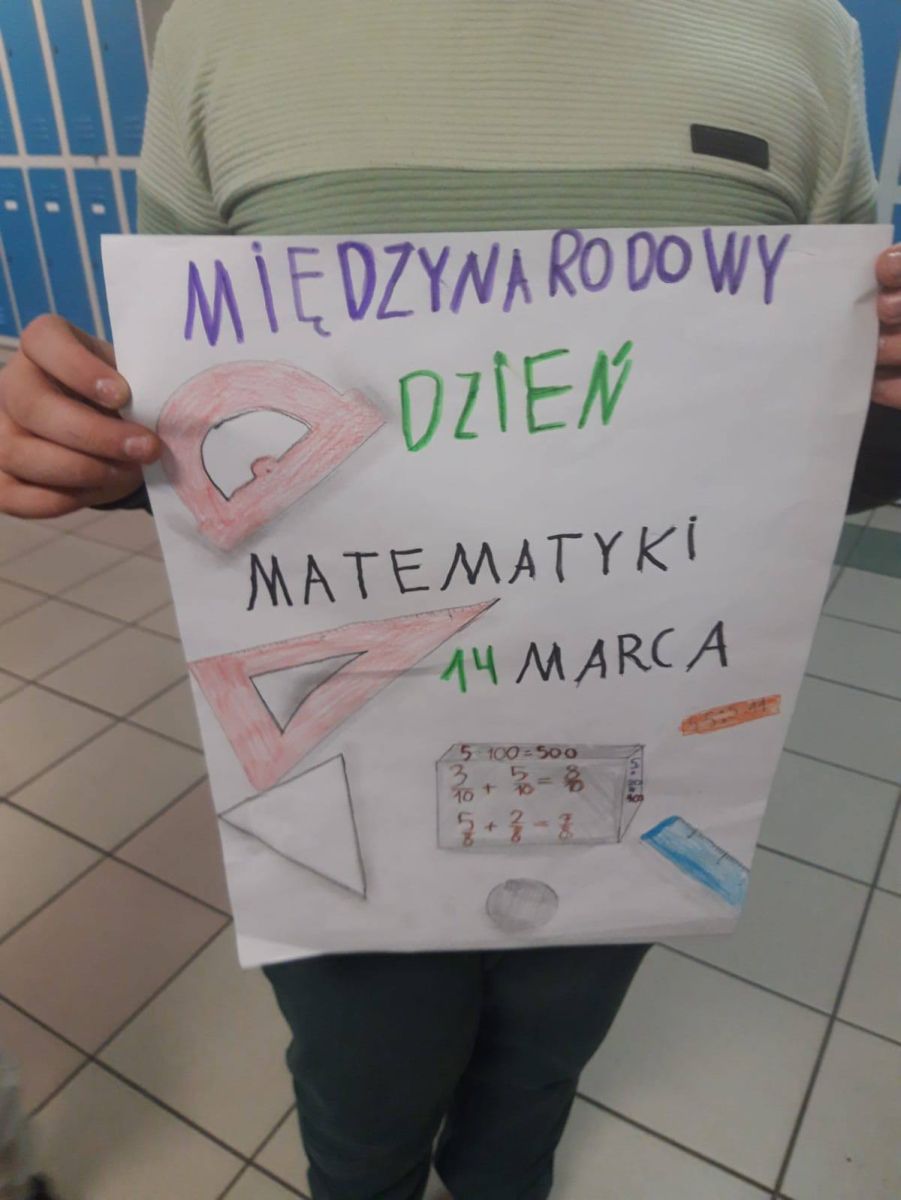 MIĘDZYNARODOWY
DZIEŃ
MATEMATYKI
14 MARCA
5·100=500
3/10 + 5/10 = 8/10
5/8 + 2/8 = 7/8